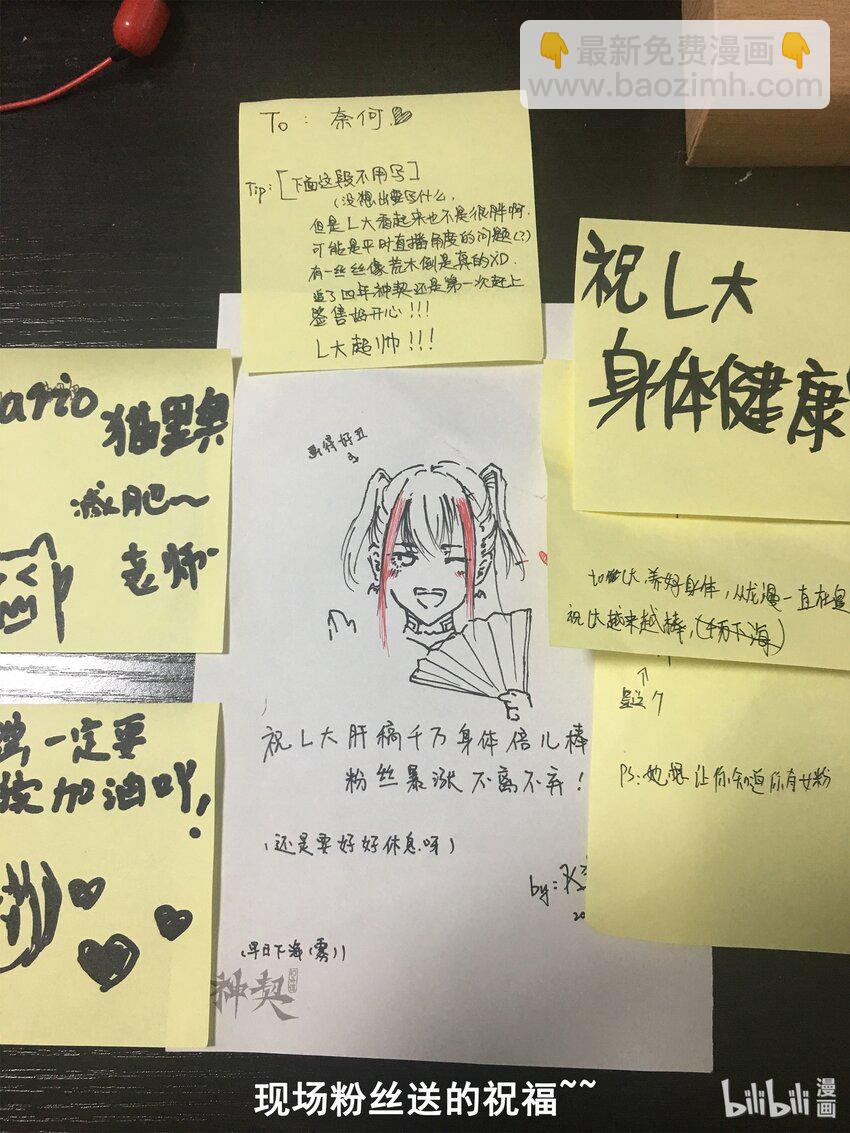 👇最新免费漫画👇
www.baozimh.com
To : 奈何
Tip: [下面这段不用写]
(没想出要写什么,
但是L大看起来也不是很胖啊.
可能是平时直播角度的问题(?)
有一丝丝像荒木倒是真的XD.
追了四年神契还是第一次赶上
签售好开心!!!
L大超帅!!!
祝L大
身体健康
ario 猫里奥
减肥~
老师
画得好丑
养好身体,从龙漫一直在追
祝L大越来越棒,(千万下海)
PS:她想让你知道你有女粉
一定要
加油吖!
祝L大肝稿千万身体倍儿棒
粉丝暴涨不离不弃!
(还是要好好休息呀)
by:
20
(早日下海(雾))
神契
现场粉丝送的祝福~~
bilibili 漫画